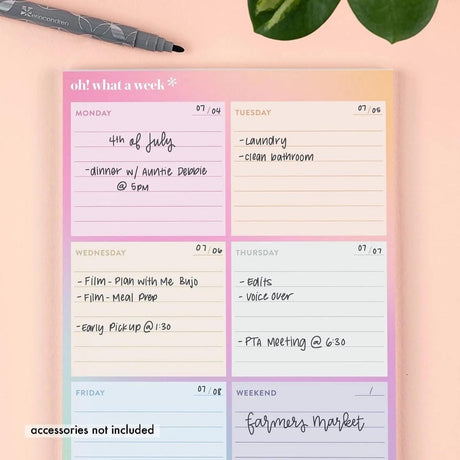 erincondren
oh! what a week*
MONDAY 07/04
4th of July
-dinner w/ Auntie Debbie
@ 5pm
TUESDAY 07/05
-Laundry
-Clean bathroom
WEDNESDAY 07/06
-Film-Plan with Me Bujo
-Film-Meal Prep
-Early Pickup @ 1:30
THURSDAY 07/07
-Edits
-Voice over
-PTA Meeting @ 6:30
FRIDAY 07/08
WEEKEND /
farmers market
accessories not included